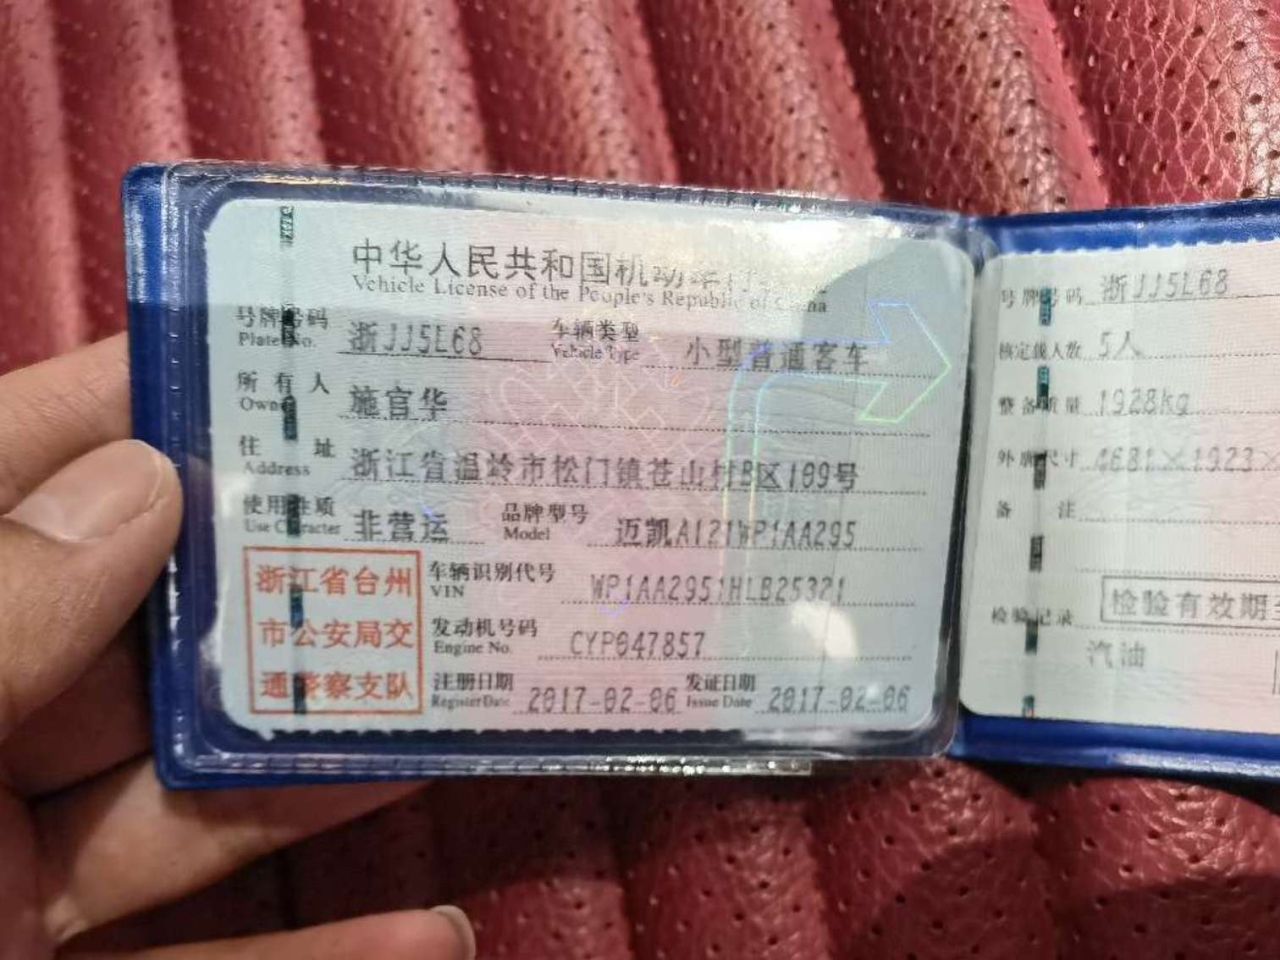 中华人民共和国机动车行
Vehicle License of the People's Republic of China
号牌号码 浙JJ5L68 车辆类型 小型普通客车
Plate No. Vehicle Type
所有人 施官华
Owner
住址 浙江省温岭市松门镇苍山村B区189号
Address
使用性质 非营运 品牌型号 迈凯A121WP1AA295
Use Character Model
浙江省台州
市公安局交
通警察支队
车辆识别代号 WP1AA2951HLB25321
VIN
发动机号码 CYP047857
Engine No.
注册日期 2017-02-06 发证日期 2017-02-06
Register Date Issue Date
号牌号码 浙JJ5L68
核定载人数 5人
整备质量 1928kg
外廓尺寸 4681×1923×
备注
检验有效期
检验记录
汽油